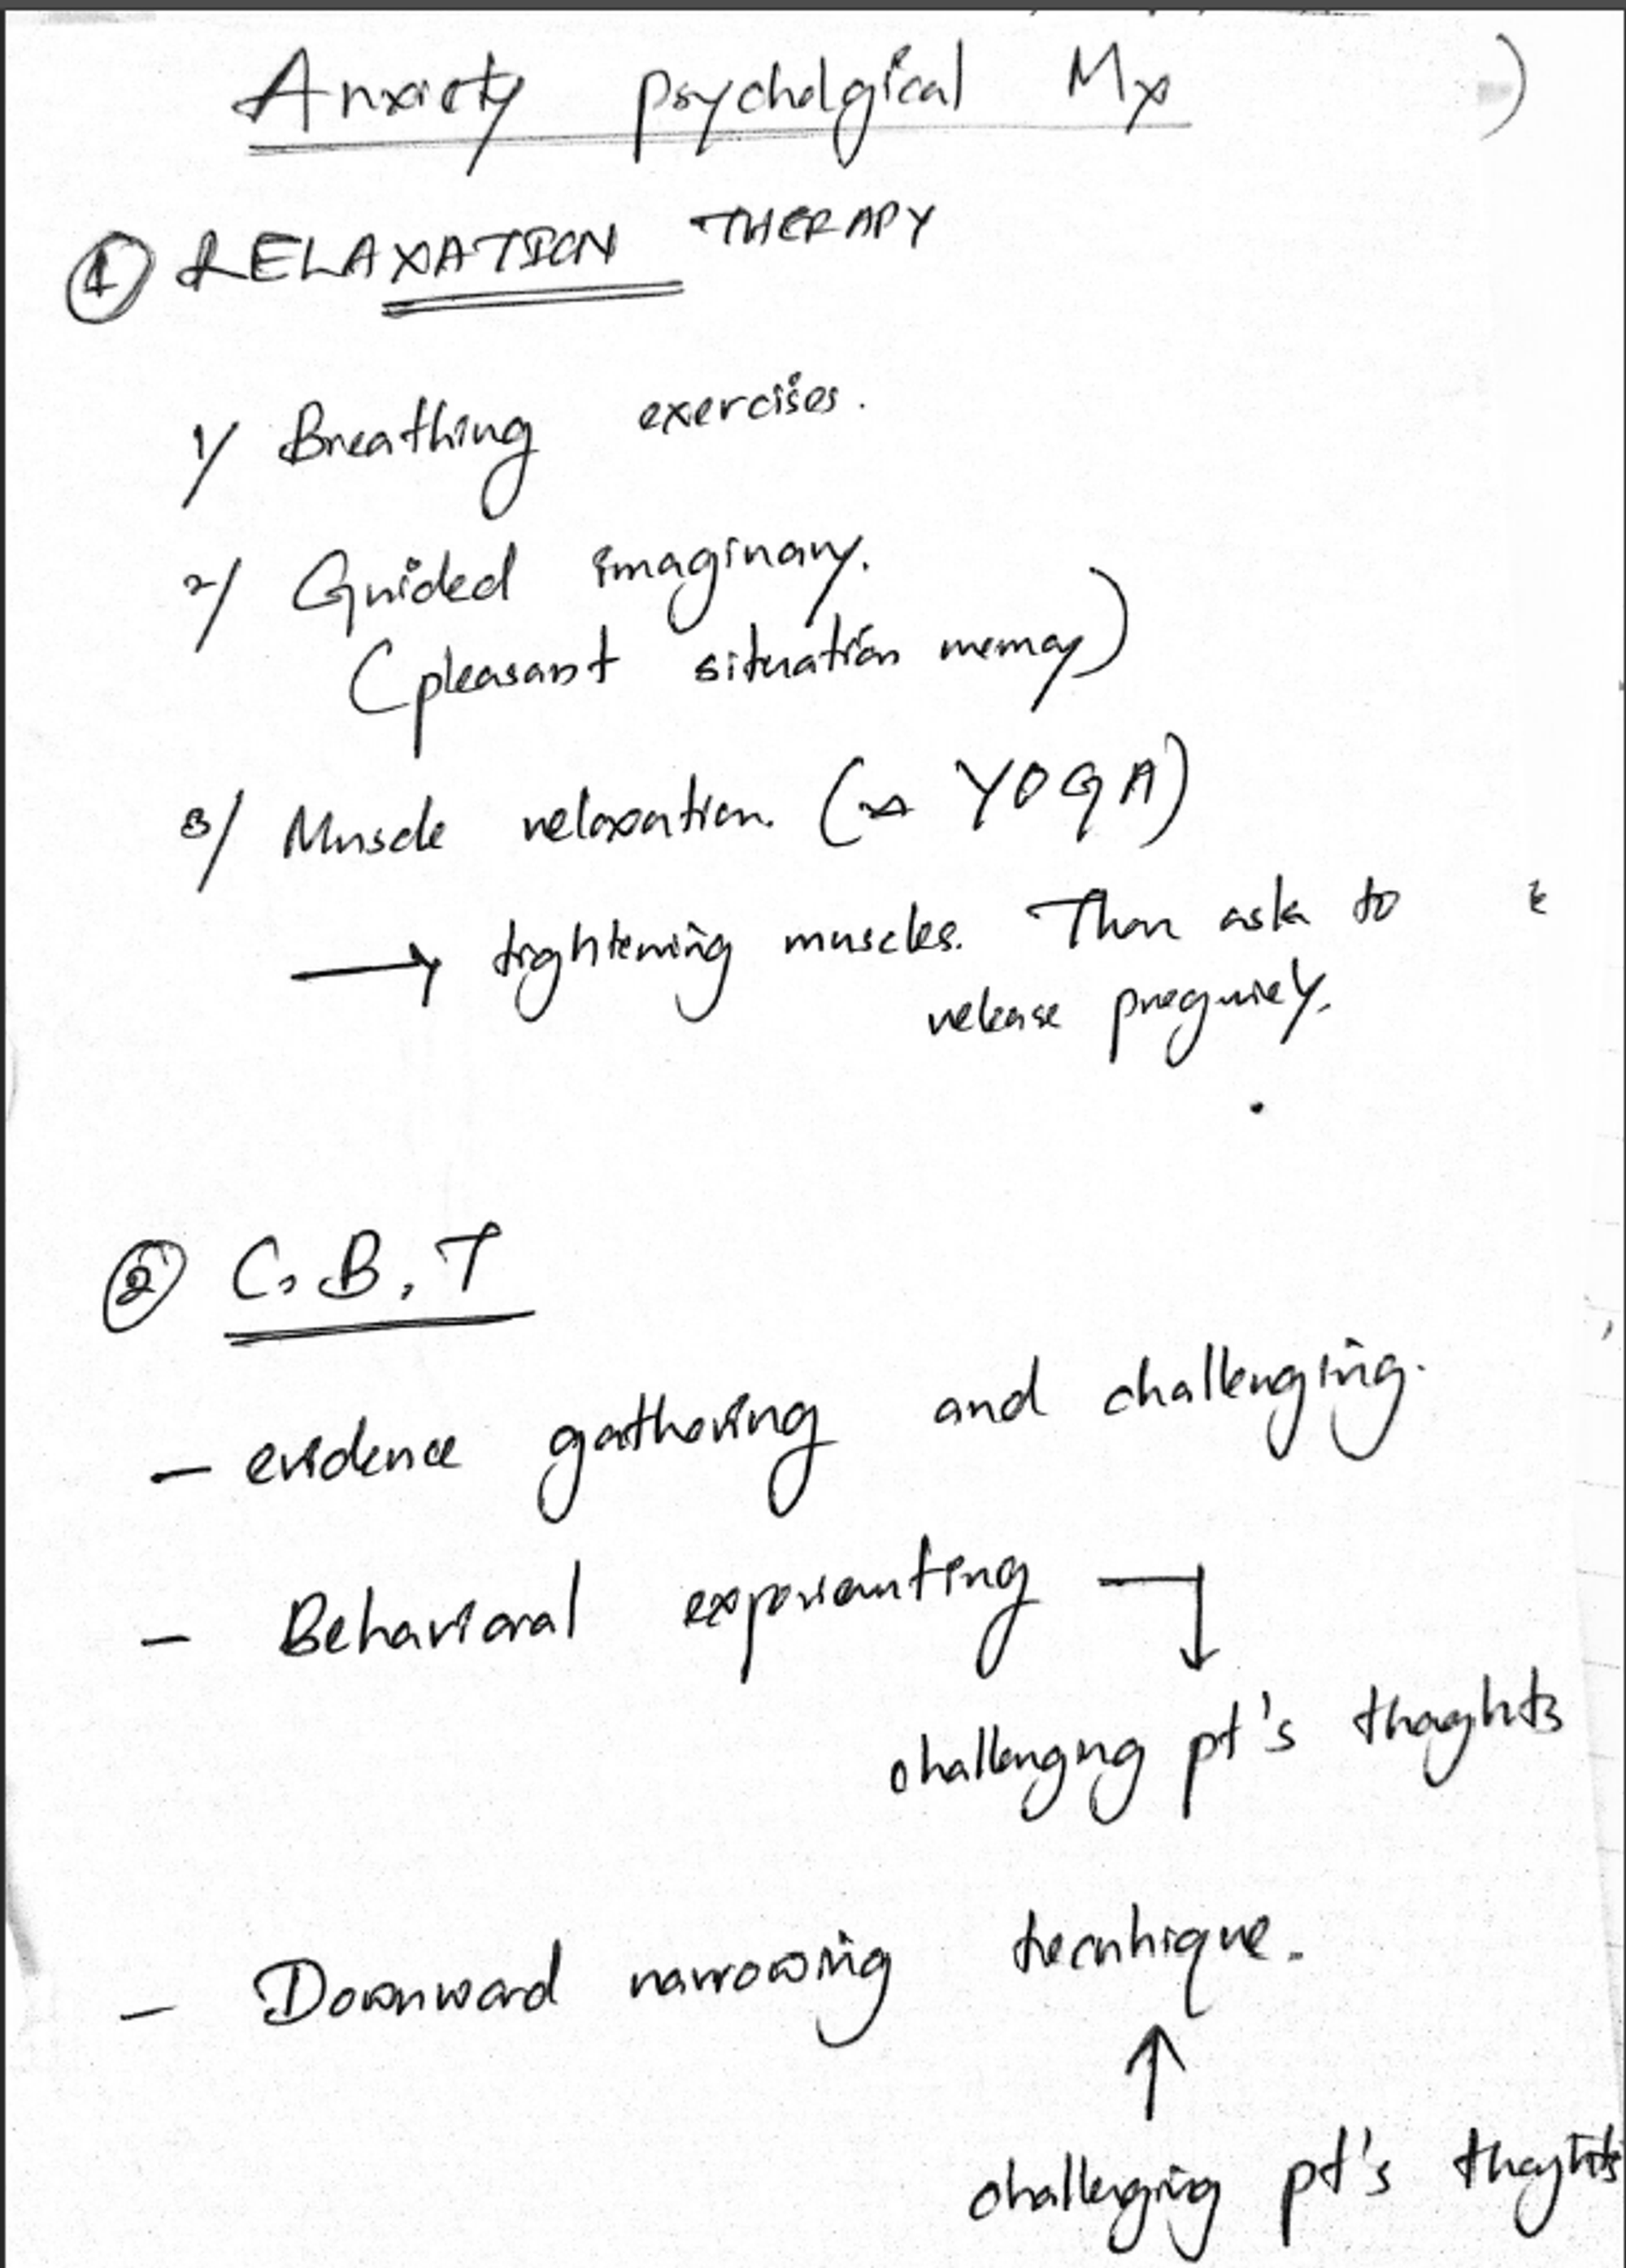 Anxiety psycholgical Mx
① RELAXATION THERAPY
1/ Breathing exercises.
2/ Guided imaginary.
(pleasant situation memay)
3/ Muscle relaxation. (≈ YOGA)
→ tightening muscles. Then ask to
release
② C.B.T
- evidence gathering and challenging.
- Behavioral
challenging pt's thoughts
- Downward narrowing tecnhique.
↑
challenging pt's thoughts